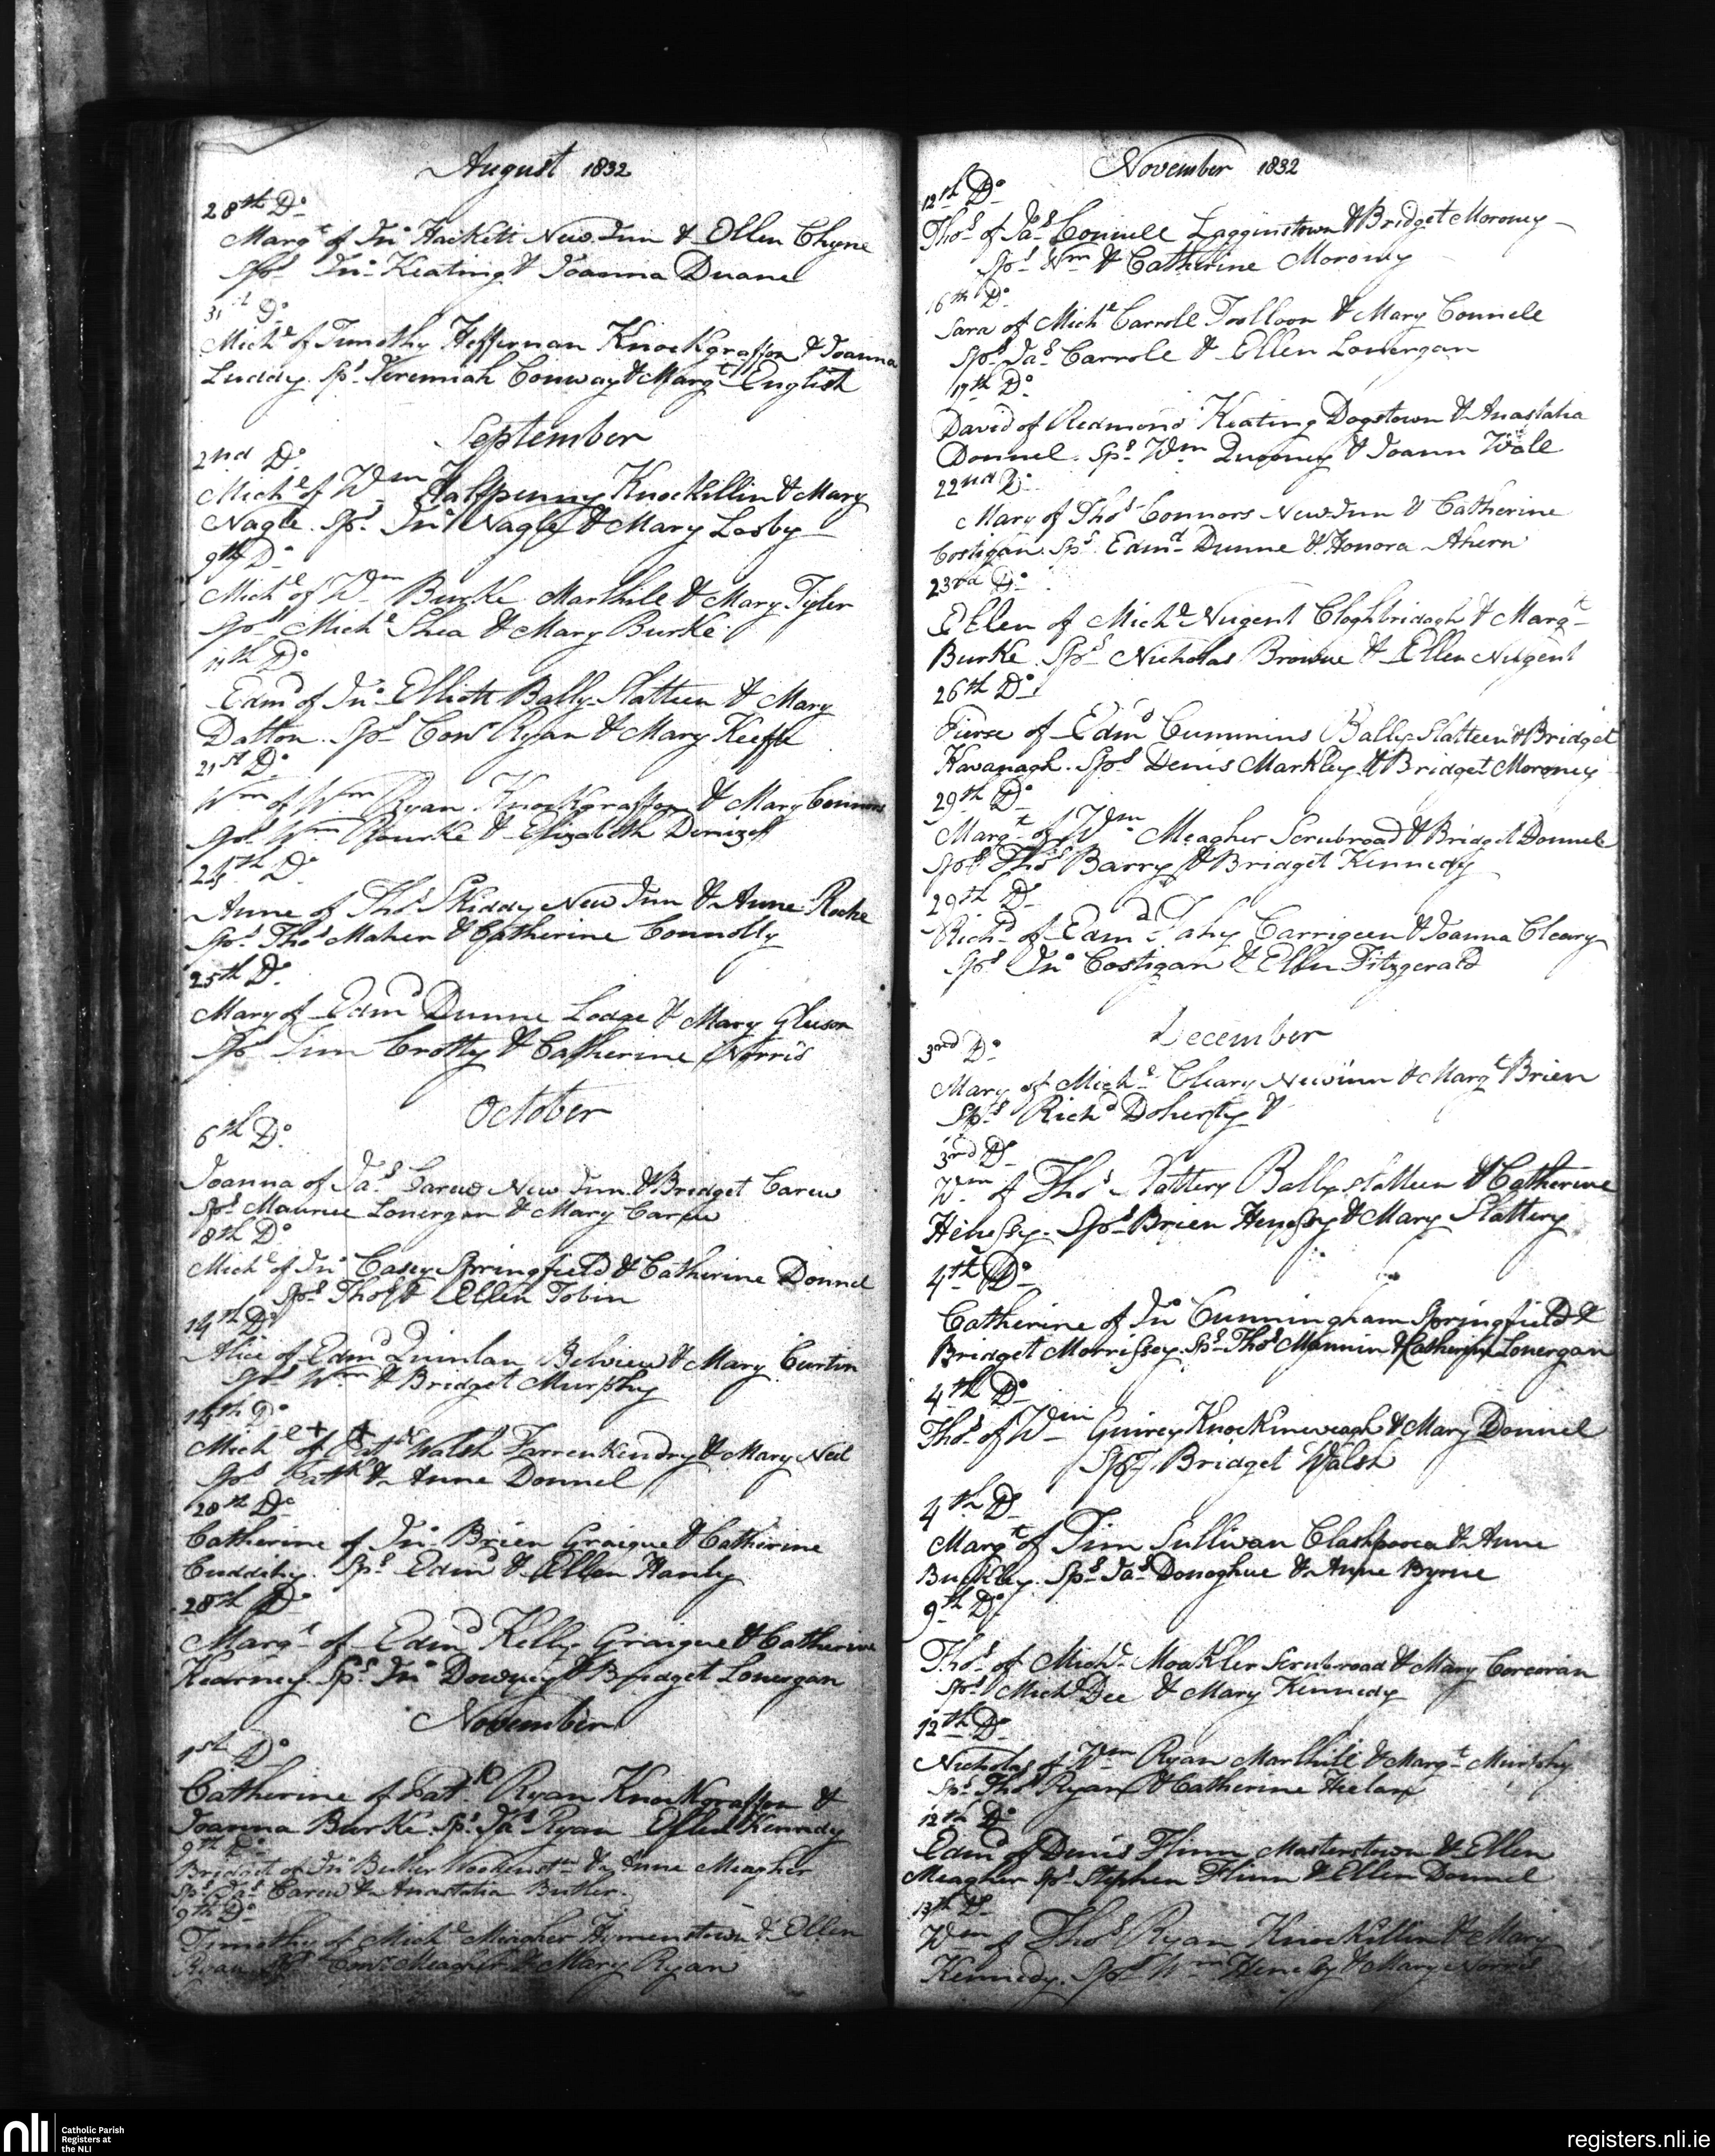 August 1832
28th Do
Margt of Jno Hackett New Inn & Ellen Chyne
Sps Jno Keating & Joanna Duane
31st Do
Michl of Timothy Heffernan Knockgraffon & Joanna
Luddy. Sps Jeremiah Conway & Margt English
September
2nd Do
Michl of Wm Halfpenny Knockillin & Mary
Nagle. Sps Jno Nagle & Mary Losby
9th Do
Michl of Wm Burke Marlhill & Mary Tyler
Sps Michl Shea & Mary Burke
11th Do
Edmd of Jno Elliott Bally Slatteen & Mary
Dalton. Sps Conr Ryan & Mary Keeffe
21st Do
Wm of Wm Ryan Knockgraffon & Mary Connors
Sps Wm Rourke & Elizabeth
24th Do
Anne of Thos Skiddy New Inn & Anne Roche
Sps Thos Maher & Catherine Connolly
25th Do
Mary of Edmd Dunne Lodge & Mary Gleeson
Sps Tim Crotty & Catherine Norris
October
6th Do
Joanna of Jas Carew New Inn & Bridget Carew
Sps Maurice Lonergan & Mary Carew
8th Do
Michl of Jno Casey Springfield & Catherine Donnel
Sps Thos & Ellen Tobin
14th Do
Alice of Edmd Quinlan Belview & Mary Curtin
Sps Wm & Bridget Murphy
14th Do
Michl of Patk Walsh Farrenkendry & Mary Neil
Sps Patk & Anne Donnel
28th Do
Catherine of Jno Brien Graigue & Catherine
Cuddihy. Sps Edmd & Ellen Hanly
28th Do
Margt of Edmd Kelly Graigue & Catherine
Kearney. Sps Jno Downey & Bridget Lonergan
November
1st Do
Catherine of Patk Ryan Knockgraffon &
Joanna Burke. Sps Jas Ryan Ellen Kennedy
9th Do
Bridget of Jno Butler & Anne Meagher
Sps Jas Carew & Anastatia Butler.
9th Do
Timothy of Michl Meagher & Ellen
Ryan Sps Conr Meagher & Mary Ryan
November 1832
12th Do
Thos of Jas Connell Lagginstown & Bridget Moroney
Sps Wm & Catherine Moroney
16th Do
Sara of Michl Carroll Toolloon & Mary Connell
Sps Jas Carrole & Ellen Lonergan
17th Do
David of Redmond Keating Dogstown & Anastatia
Donnel. Sps Wm & Joann Wall
22nd Do
Mary of Thos Connors New Inn & Catherine
Costigan Sps Edmd Dunne & Honora Ahern
23rd Do
Ellen of Michl Nugent Cloghbridagh & Margt
Burke. Sps Nicholas Browne & Ellen Nugent
26th Do
Pierse of Edmd Cummins Bally Slatteen & Bridget
Kavanagh. Sps Denis Markley & Bridget Moroney
29th Do
Margt of Wm Meagher Scrubroad & Bridget Donnel
Sps Thos Barry & Bridget Kennedy
29th Do
Richd of Edmd Fahy Carrigeen & Joanna Cleary
Sps Jno Costigan & Ellen Fitzgerald
December
3rd Do
Mary of Michl Cleary Newinn & Margt Brien
Sps Richd Doherty &
3rd Do
Wm of Thos Slattery Bally Slatteen & Catherine
Henessy. Sps Brien Henessy & Mary Slattery
4th Do
Catherine of Jno Cunningham Springfield &
Bridget Morrissey. Sps Thos Mannin & Catherine Lonergan
4th Do
Thos of Wm Guirey Knockinweagh & Mary Donnel
Sps Bridget Walsh
4th Do
Margt of Tim Sullivan & Anne
Buckley. Sps Jas Donoghue & Anne Byrne
9th Do
Thos of Michl Moakler Scrubroad & Mary Corcoran
Sps Michl Dee & Mary Kennedy
12th Do
Nicholas of Wm Ryan Marlhill & Margt Murphy
Sps Thos Ryan & Catherine Heelan
12th Do
Edmd of Denis Flinn Masterstown & Ellen
Meagher Sps Stephen Flinn & Ellen Donnel
13th Do
Wm of Thos Ryan Knockillin & Mary
Kennedy. Sps Wm Henesy & Mary Norris
nli
Catholic Parish
Registers at
the NLI
registers.nli.ie